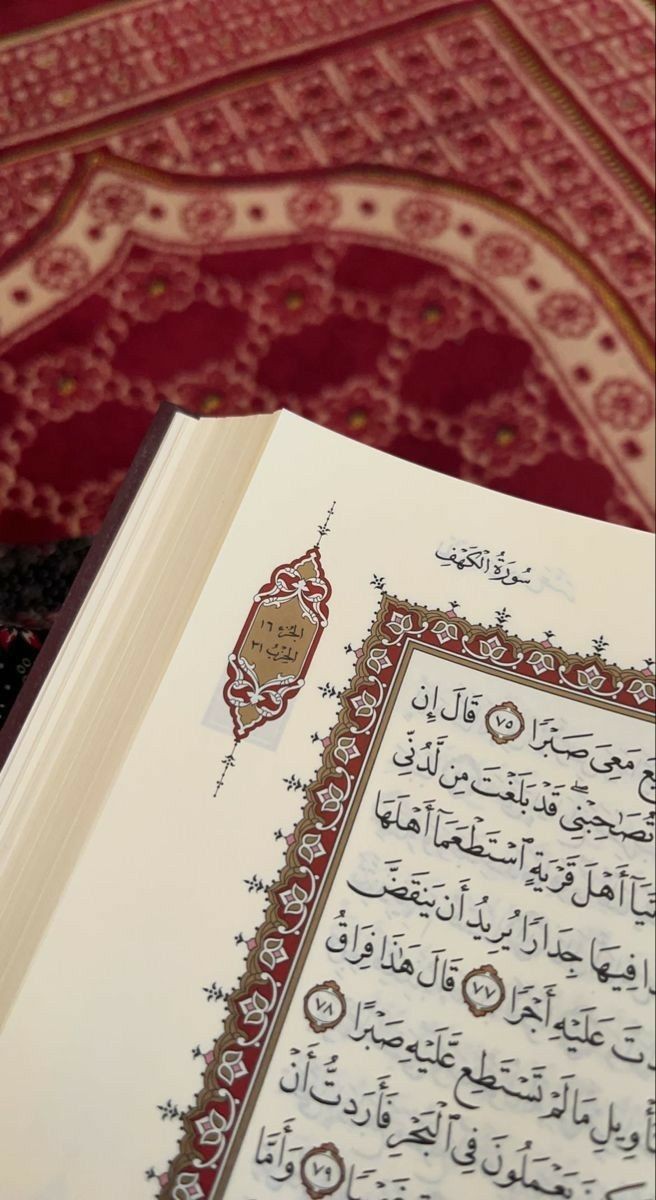 سُورَةُ الْكَهْفِ
الجُزْءُ ١٦
الحِزْبُ ٣١
مَعِىَ صَبْرًا ٧٥ قَالَ إِن
تُصَٰحِبْنِى ۖ قَدْ بَلَغْتَ مِن لَّدُنِّى
أَهْلَ قَرْيَةٍ ٱسْتَطْعَمَآ أَهْلَهَا
فِيهَا جِدَارًا يُرِيدُ أَن يَنقَضَّ
عَلَيْهِ أَجْرًا ٧٧ قَالَ هَٰذَا فِرَاقُ
مَا لَمْ تَسْتَطِع عَّلَيْهِ صَبْرًا ٧٨
يَعْمَلُونَ فِى ٱلْبَحْرِ فَأَرَدتُّ أَنْ
٧٩ وَأَمَّا